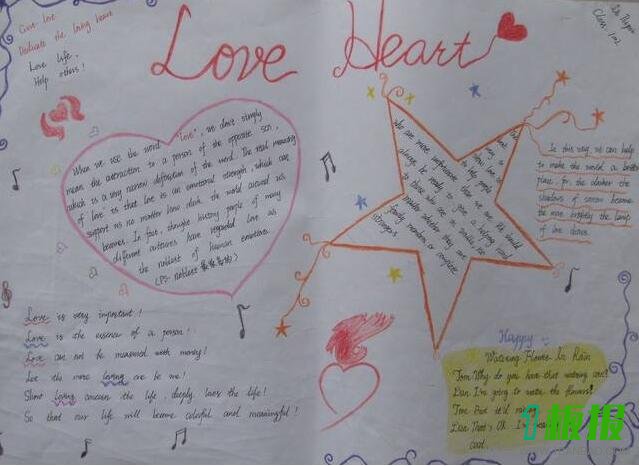 Give love
Dedicate the loving heart
Love life,
Help others!
Love Heart
Class 102
When we use the word "love", we don't simply
mean the attraction to a person of the opposite sex,
which is a very narrow definition of the word. The real meaning
of "love" is that love is an emotional strength, which can
support us no matter how dark the world around us
becomes. In fact, throught history people of many
different cultures have regarded love as
the noblest of human emotions.
(PS: noblest
who are more unfortunate than we are. We should
always be ready to give a helping hand
to those who are in trouble, no
matter whether they are
family members or complete
strangers.
In this way, we can help
to make the world a better
place, for the darker the
shadows of sorrow become
the more brightly the lamp
of love shines.
Love is very important!
Love is the essence of a person!
Love can not be measured with money!
Let the more loving on be me!
Show loving concern the life, deeply loves the life!
So that our life will become colorful and meaningful!
Happy
Watering Flower In Rain
Tom: Why do you have that watering can?
Dan: I'm going to water the flowers!
Tom: But it's
Dan: That's OK. I'm
coat.
板报